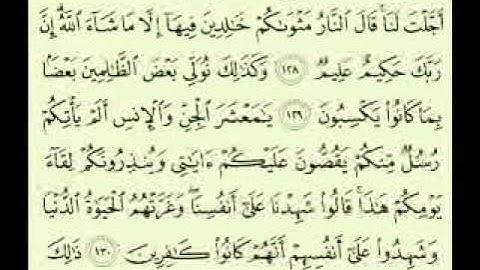 أَجَّلْتَ لَنَا ۚ قَالَ النَّارُ مَثْوَىٰكُمْ خَٰلِدِينَ فِيهَآ إِلَّا مَا شَآءَ اللَّهُ ۗ إِنَّ
رَبَّكَ حَكِيمٌ عَلِيمٌ ١٢٨ وَكَذَٰلِكَ نُوَلِّي بَعْضَ الظَّٰلِمِينَ بَعْضًۢا
بِمَا كَانُوا۟ يَكْسِبُونَ ١٢٩ يَٰمَعْشَرَ الْجِنِّ وَالْإِنسِ أَلَمْ يَأْتِكُمْ
رُسُلٌ مِّنكُمْ يَقُصُّونَ عَلَيْكُمْ ءَايَٰتِي وَيُنذِرُونَكُمْ لِقَآءَ
يَوْمِكُمْ هَٰذَا ۚ قَالُوا۟ شَهِدْنَا عَلَىٰٓ أَنفُسِنَا ۖ وَغَرَّتْهُمُ الْحَيَوٰةُ الدُّنْيَا
وَشَهِدُوا۟ عَلَىٰٓ أَنفُسِهِمْ أَنَّهُمْ كَانُوا۟ كَٰفِرِينَ ١٣٠ ذَٰلِكَ